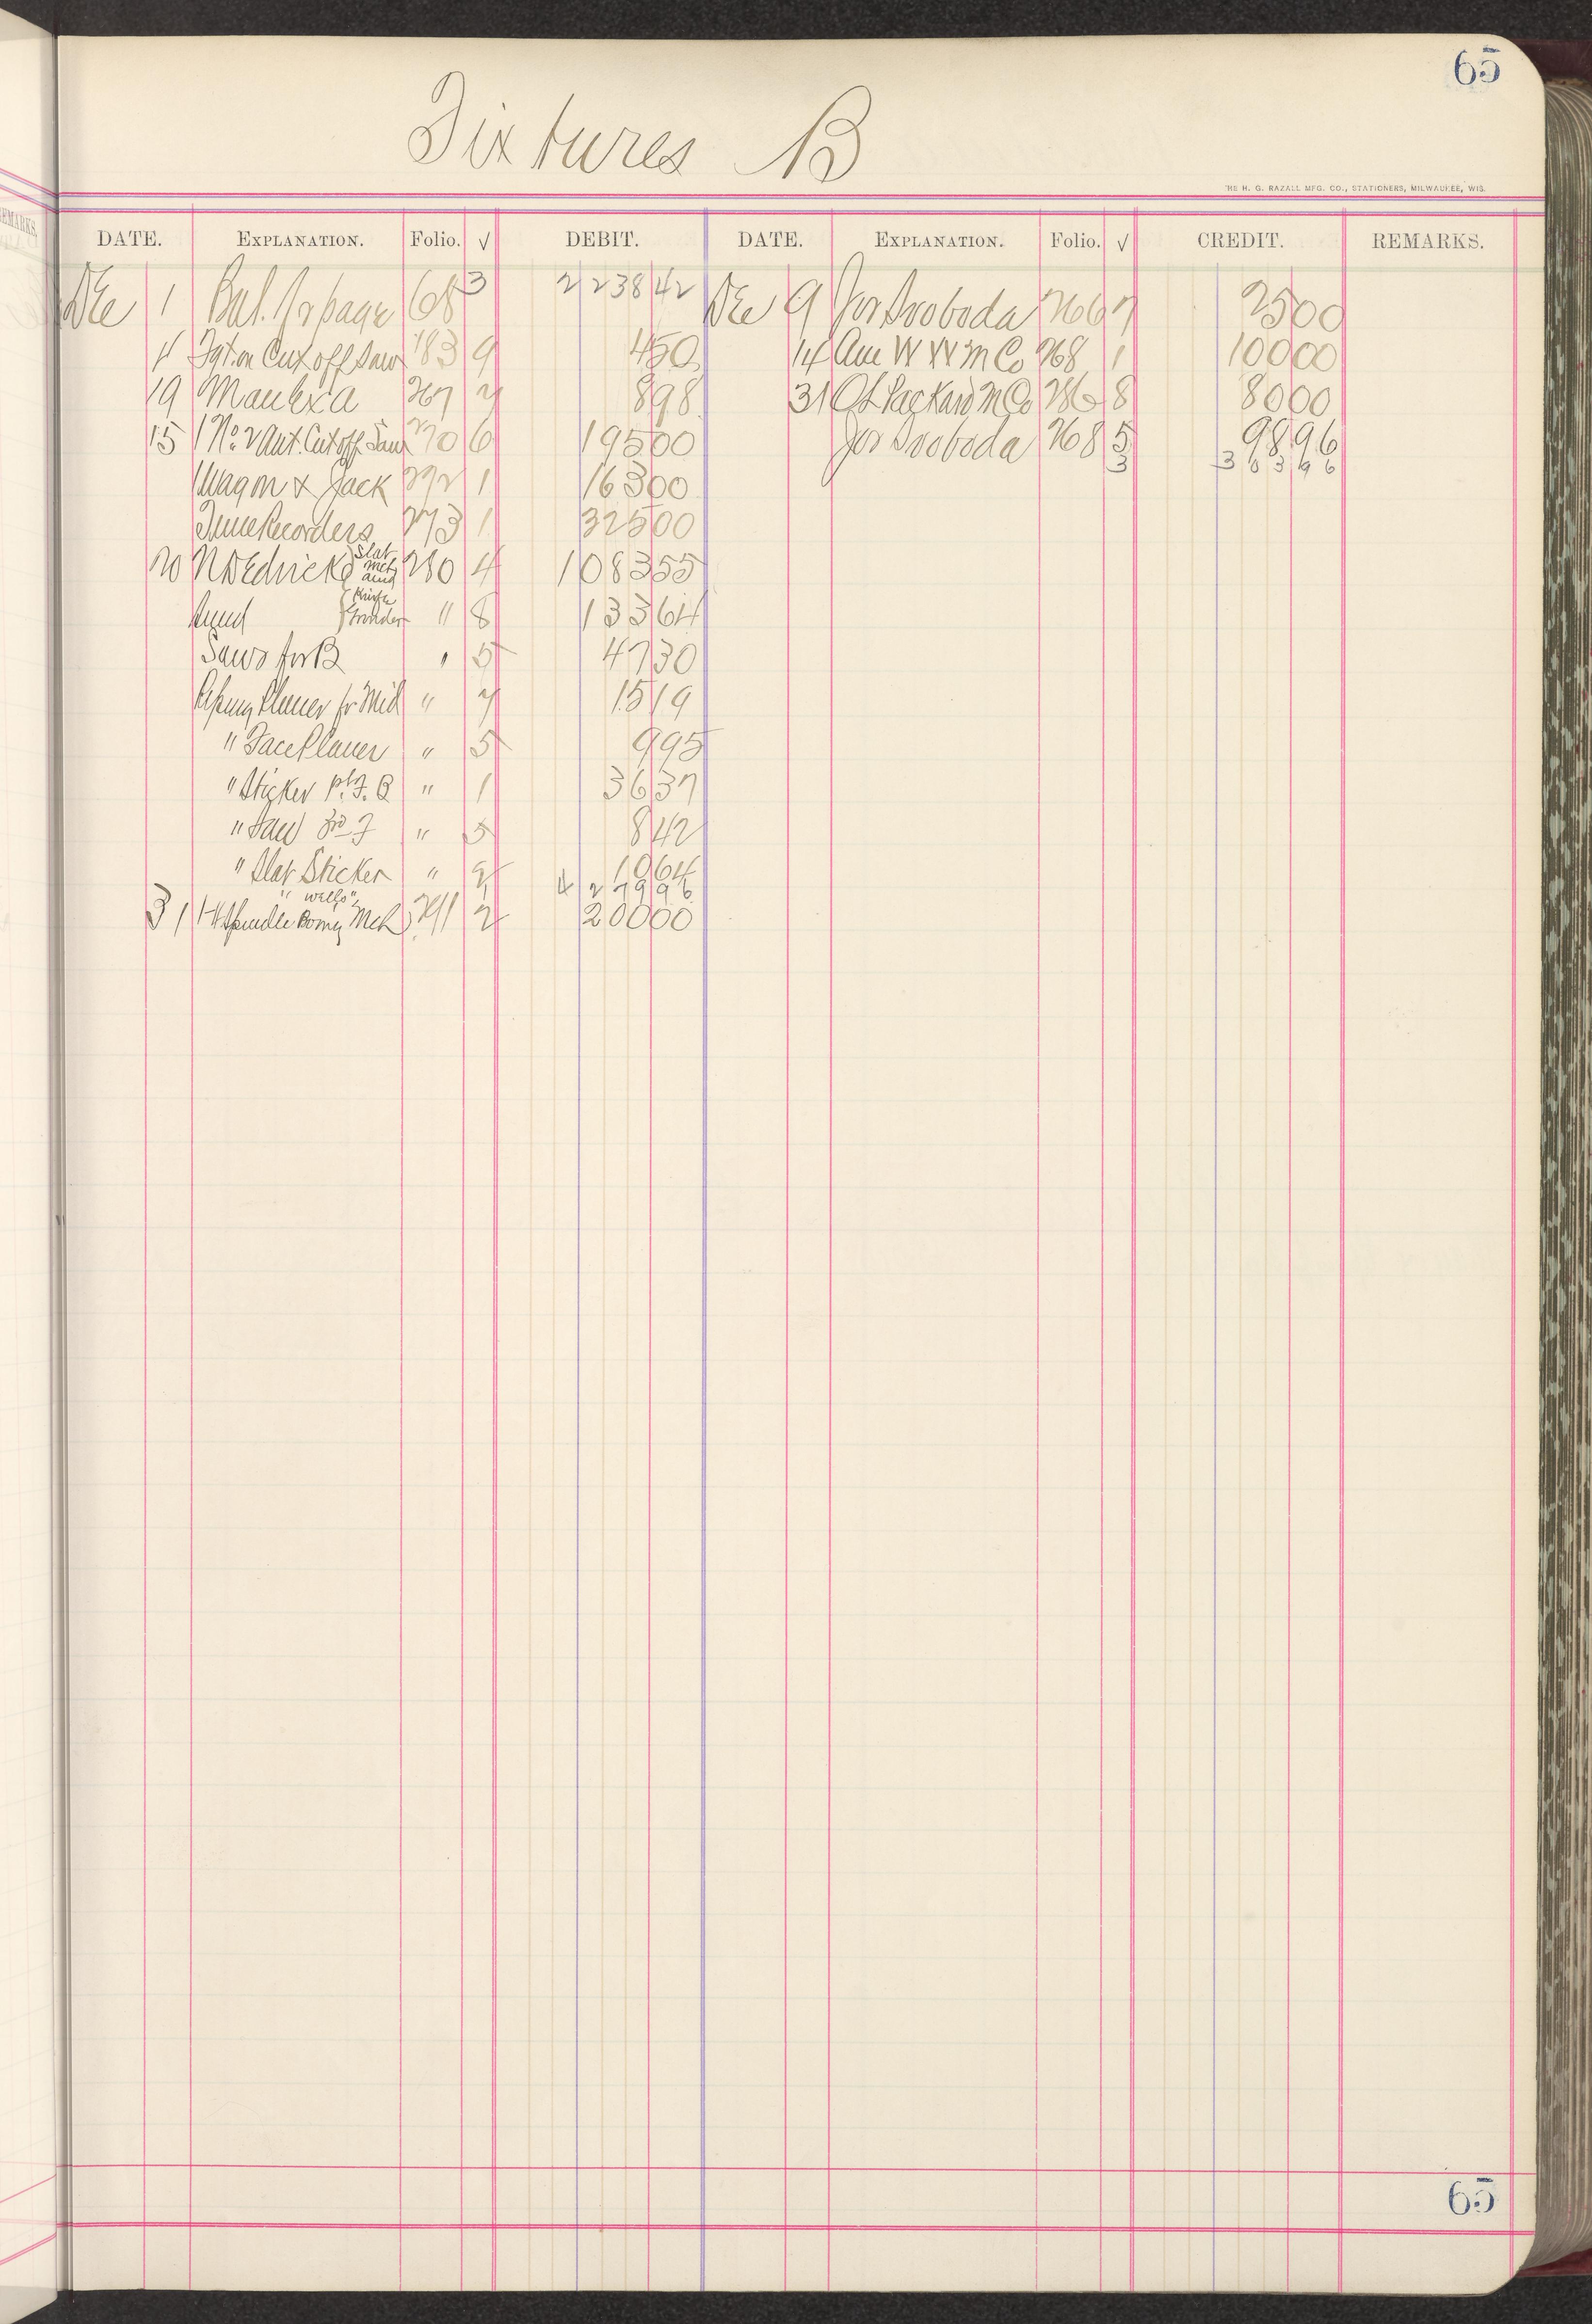 65
Fixtures B
THE H. G. RAZALL MFG. CO., STATIONERS, MILWAUKEE, WIS.
REMARKS.
DATE. EXPLANATION. Folio. √ DEBIT. DATE. EXPLANATION. Folio. √ CREDIT. REMARKS.
Dec 1 Bal. fr page 68 3 2238 42 Dec 9 Jos Svoboda 266 7 25 00
11 Fgt on Cut off Saw 183 9 4 50 14 Am W W M Co 268 1 100 00
19 267 8 98 31 Packard M Co 286 8 80 00
15 1 No 2 Aut. Cut off Saw 270 6 195 00 Jos Svoboda 268 5 98 96
3 303 96
Wagon & Jack 272 1 163 00
Time Recorders 273 1 325 00
Slat
20 280 4 1083 55
Mch
and
Knife
Grinder " 8 133 64
Saws for B " 5 47 30
Planer fr Mid " 15 19
" Face Planer " 5 9 95
" Sticker F. B " 1 36 37
" Saw 3rd F " 5 8 42
" Slat Sticker " 2 10 64
4279 96
" Wells"
31 1 4 Spindle Boring Mch 2 200 00
65